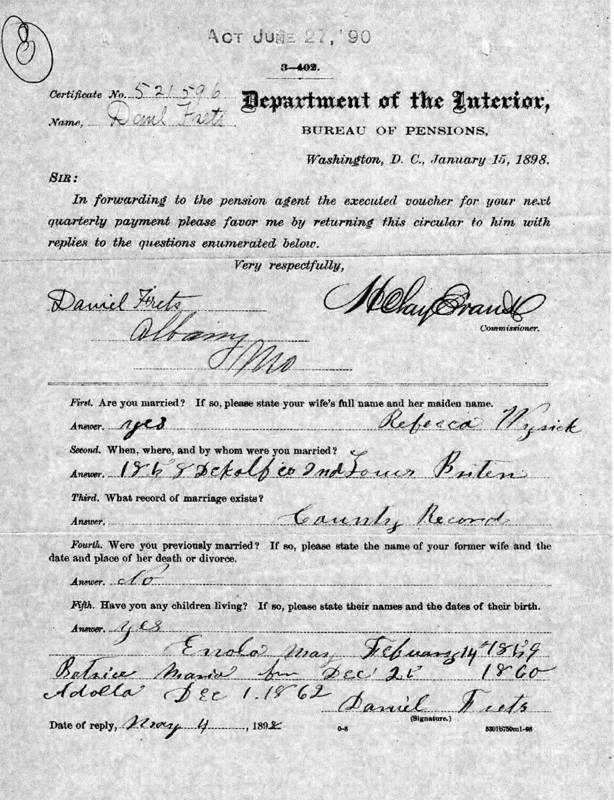 3
ACT JUNE 27, '90
3-402.
Certificate No. 521596
Department of the Interior,
Name, Danl Frets
BUREAU OF PENSIONS,
Washington, D. C., January 15, 1898.
SIR:
In forwarding to the pension agent the executed voucher for your next
quarterly payment please favor me by returning this circular to him with
replies to the questions enumerated below.
Very respectfully,
Daniel Frets
H Clay Evans
Albany
Commissioner.
Mo
First. Are you married? If so, please state your wife's full name and her maiden name.
Answer. yes Rebecca
Second. When, where, and by whom were you married?
Answer. Dekalb co Ind
Third. What record of marriage exists?
Answer. County Record
Fourth. Were you previously married? If so, please state the name of your former wife and the
date and place of her death or divorce.
Answer. No
Fifth. Have you any children living? If so, please state their names and the dates of their birth.
Answer. yes
May February 14th
Maria Dec 25 1860
Dec 1. 1862
Daniel Frets
(Signature.)
Date of reply, May 4, 1898
0-8